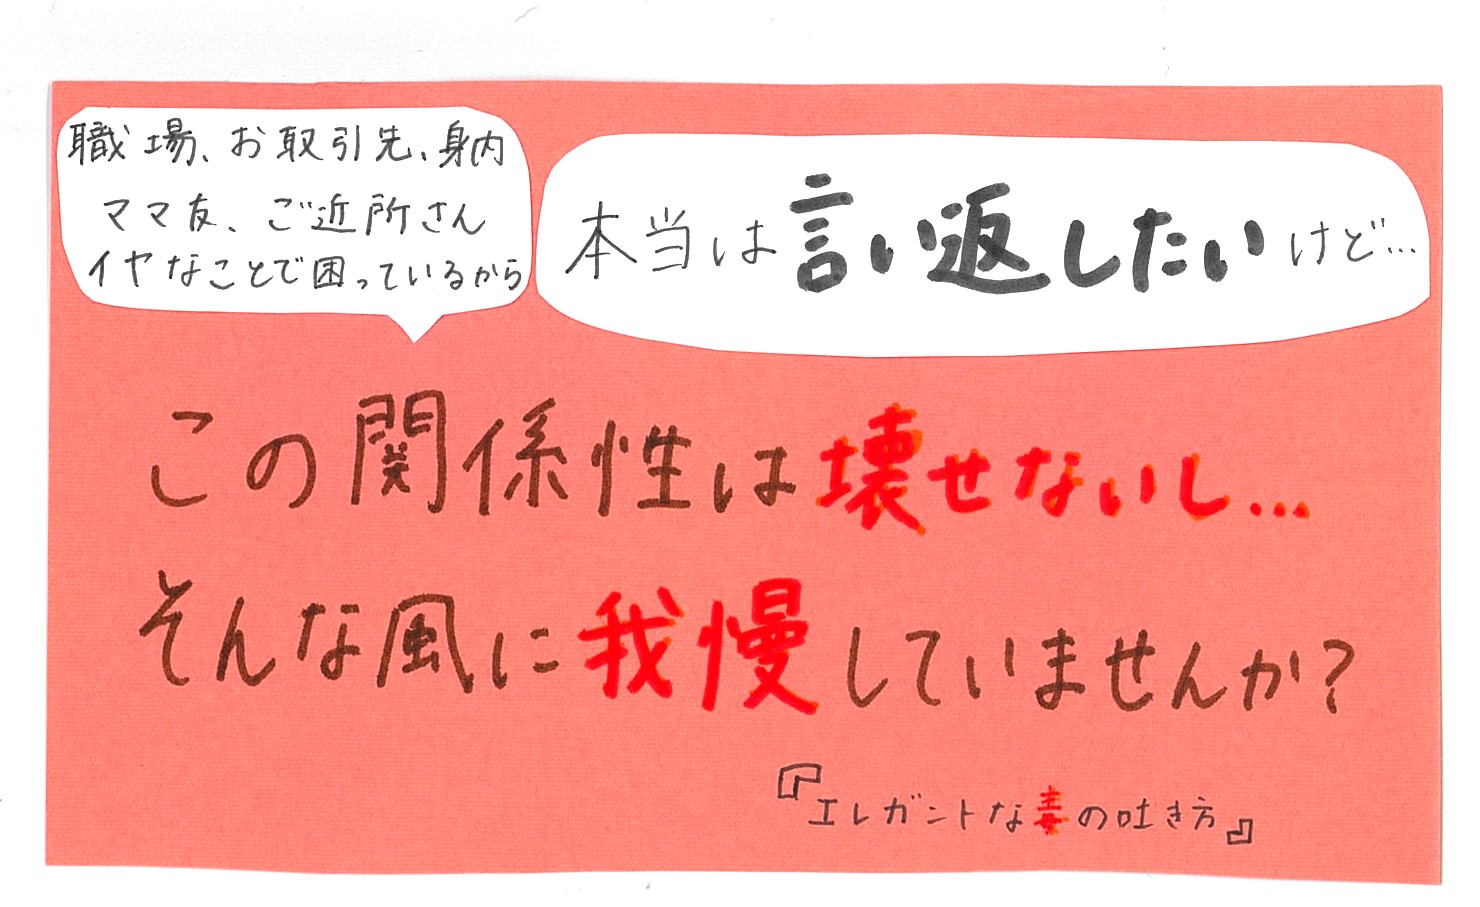 職場、お取引先、身内
ママ友、ご近所さん
イヤなことで困っているから
本当は言い返したいけど…
この関係性は壊せないし…
そんな風に我慢していませんか?
『エレガントな毒の吐き方』